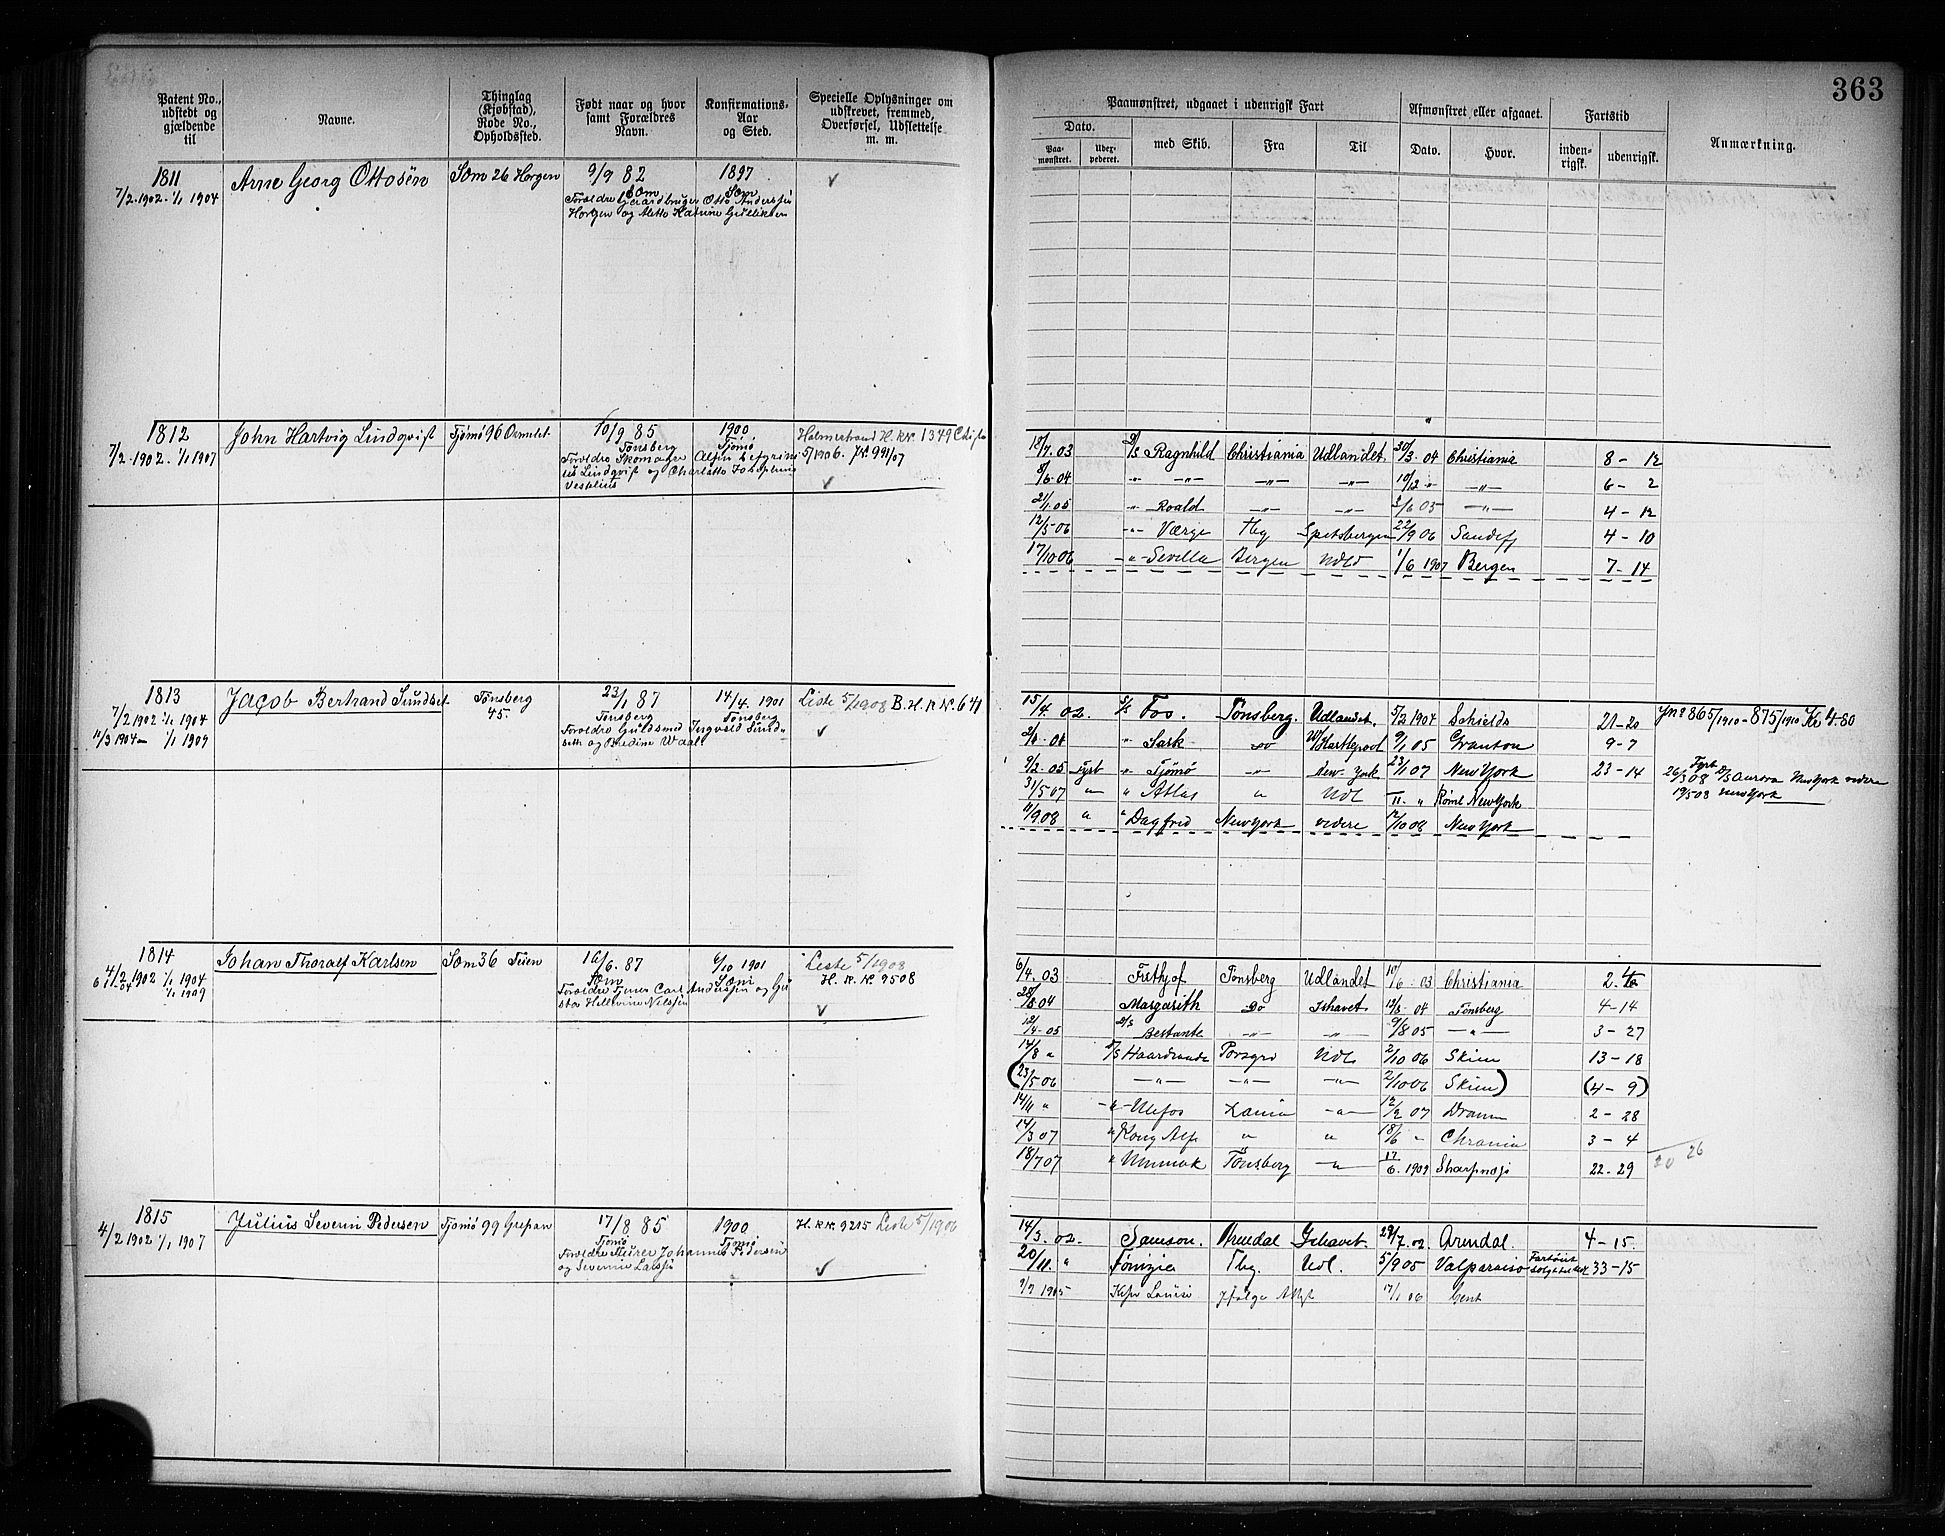 363
Patent No., udstedt og gjældende til
Navne.
Thinglag (Kjøbstad), Rode No., Opholdssted.
Født naar og hvor samt Forældres Navn.
Konfirmations-Aar og Sted.
Specielle Oplysninger om udskrevet, fremmed, Overførsel, Udslettelse m. m.
Paamønstret, udgaaet i udenrigsk Fart
Afmønstret eller afgaaet.
Fartstid
Anmærkning.
Dato.
Paa-mønstret.
Udex-pederet.
med Skib.
Fra
Til
Dato.
Hvor.
inden-rigsk.
udenrigsk.
1811
7/2 1902 - 1/1 1904
Arne Georg Ottosen
Sem 26 Horgen
9/9 82
Sem
1897
Sem
Forældre Gaardbruger Otto Anderssen
Horgen og Mette Katrine Gulliksen
1812
7/2 1902 - 1/1 1907
John Hartvig Lindqvist
Tjømø 96 Ormelet
10/9 85
Tønsberg
1900
Tjømø
Holmestrand H. RN. 1349
5/1906. JN. 991/07
18/7 03 D/S Ragnhild Christiania Udlandet 30/3 04 Christiania 8 - 12
8/6 04 " — " — — " — — " — 10/12 " — " — 6 - 2
21/1 05 " Roald — " — — " — 3/6 05 — " — 4 - 12
12/5 06 " Værge Tbg Spitsbergen 22/9 06 Sandefj 4 - 10
17/10 06 " Sevilla Bergen Udld 1/6 1907 Bergen 7 - 14
1813
7/2 1902 1/1 1904
11/3 1904 - 1/1 1909
Jacob Bertrand Sundset
Tønsberg 45.
23/1 87
Tønsberg
14/4 1901
Tønsberg
Forældre Guldsmed Ingvald Sund-
seth og Bredine Waal
Liste 5/1908 B. H. RN. 641
15/4 02. S/S Fos. Tønsberg. Udlandet. 5/2 1904 Schields 21 - 20
" Sark do W/Hartlepool 9/1 05 Granton 9 - 7
9/2 05 Fyrb " Tjømø " New-York 23/1 07 New York 23 - 14
31/5 07 " " Atlas " Udl " Rømt New York
11/9 08 " " Dagfrid New York videre 17/10 08 New York
Jno 865/1910 - 875/1910 Kr 4-80
Fyrb
26/3 08 D/S Aurora New York videre
19/5 08 New York
1814
4/2 1902 1/1 1904
1/1 1909
Johan Thoralf Karlsen
Sem 36 Teien
16/6. 87
Sem
6/10 1901
Sem
Liste 5/1908
H. RN. 9508
6/4 03 Frithjof Tønsberg Udlandet 10/6 03 Christiania
28/3 04 Margarith Do Ishavet 12/8 04 Tønsberg 4 - 14
12/4 05 Bestante — " — " 9/8 05 — " — 3 - 27
14/8 " Haardraade Porsgr Udl 2/10 06 Skien 13 - 18
(23/5 06 — " — — " — — " — 2/10 06 Skien) (4 - 9)
14/11 " — " — Ulefos Xania — " — 12/2 07 Dramm 2 - 28
14/3 07 " Kong Alf " " 18/6 " Chrania 3 - 4
18/7 07 " Unimak Tønsberg — " — 17/6 1909 Sharpness 22 - 29
20 26
1815
4/2 1902 1/1 1907
Julius Severin Pedersen
Tjømø 99 Grepan
17/8 85
Tjømø
1900
Tjømø
Forældre Murer Johannes Pedersen
og Severine Larssen
H. RN. 9215 Liste 5/1906
14/3 02. Samson. Arendal Ishavet. 29/7 02 Arendal. 4 - 15.
20/11 " Fønizia Tbg. Udl. 5/9 05 Valparaiso 33 - 15
9/9 1905 Louise 17/1 06 Gent